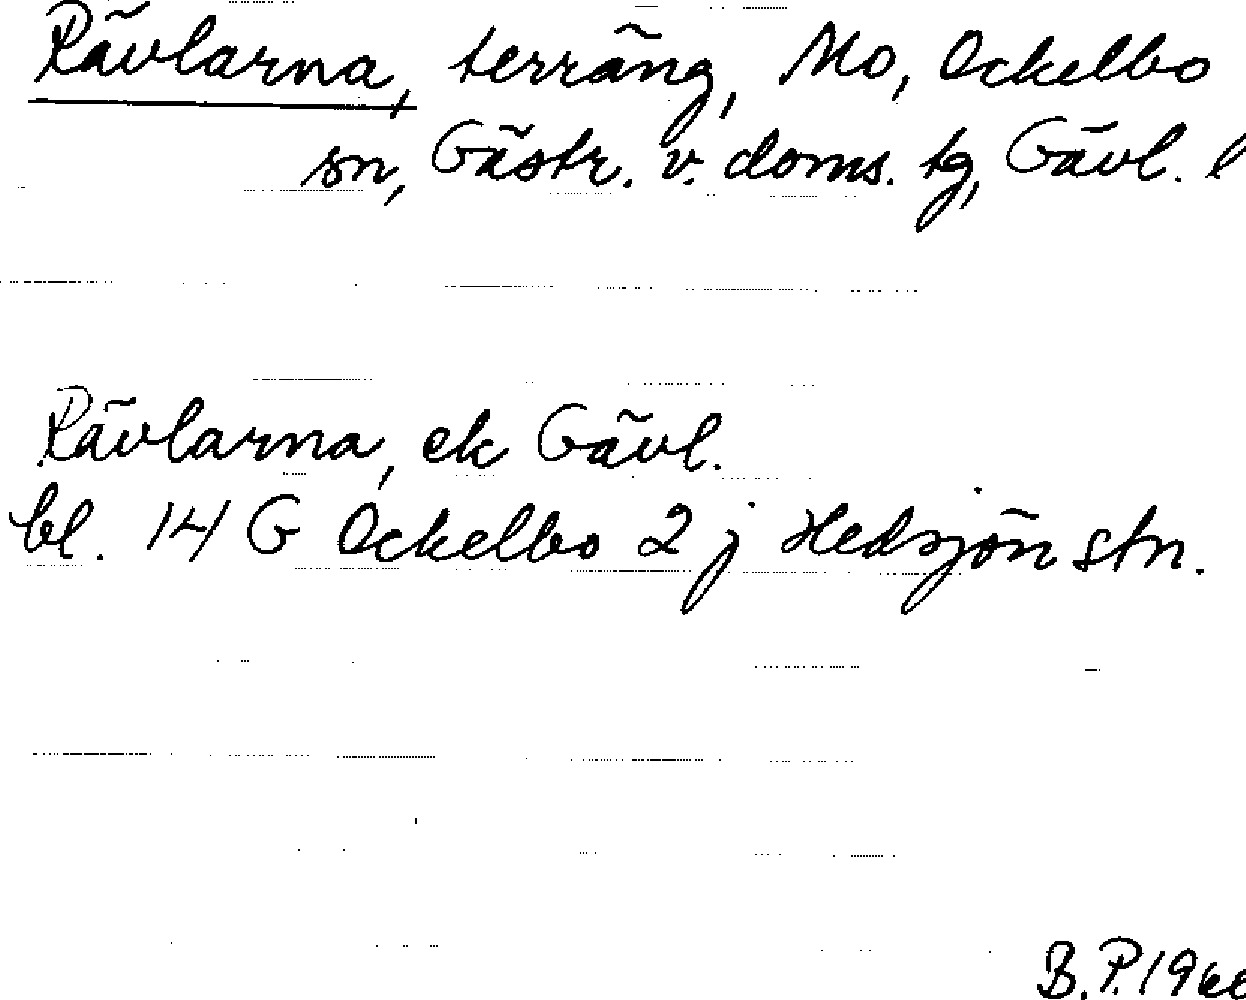 Rävlarna, terräng, Mo, Ockelbo
sn, Gästr. v. doms. tg, Gävl. l
Rävlarna, ek Gävl.
bl. 14 G Ockelbo 2 j Hedsjön stn.
B.P. 1966